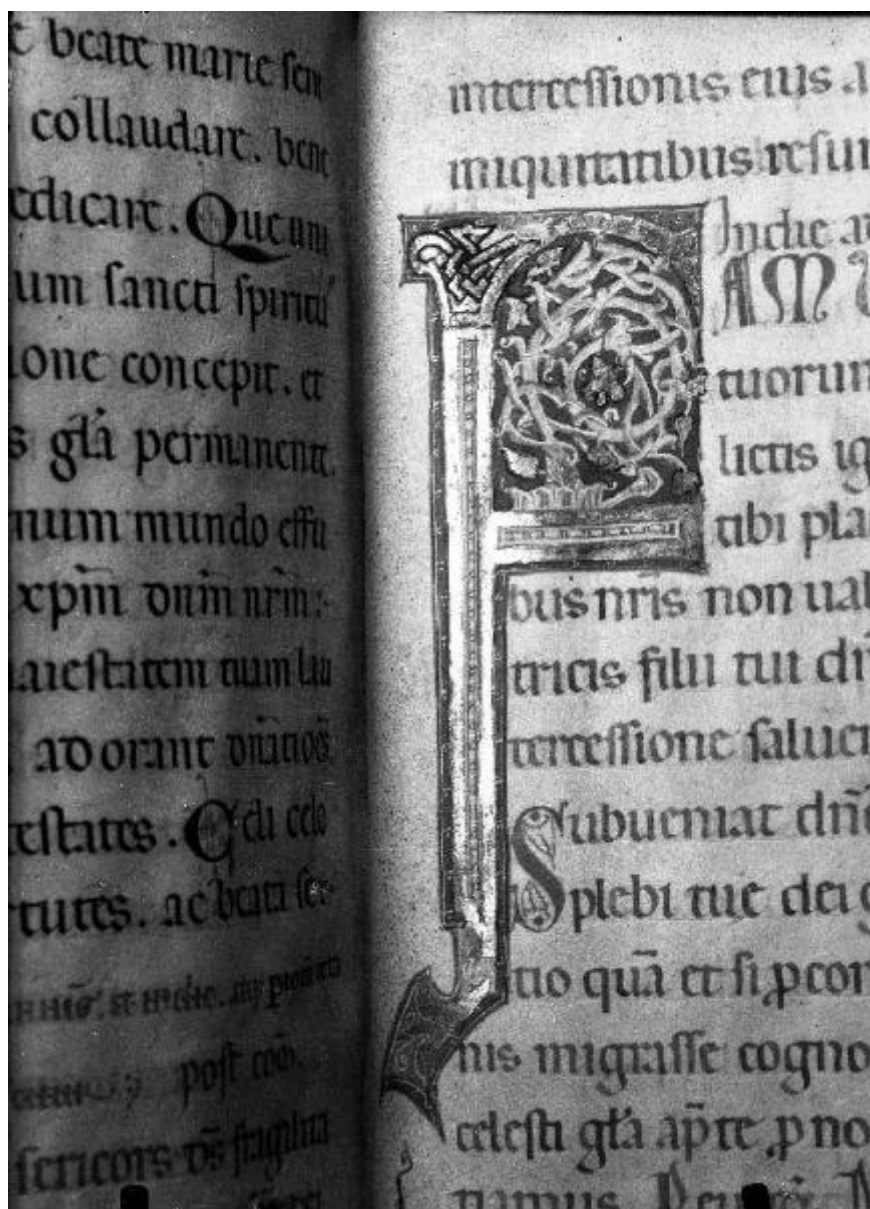 beate marie sem
collaudare. bene
edicare. Que cum
um sancti spiritu
one concepit. et
gl̄a permanente.
num mundo effu
xp̄m dn̄m nr̄m:
aiestatem tuam lau
adorant
estates. Celi celo
tutes. ac beati ser
post
sericors ds̄ fragilita
intercessionis eius a
iniquitatibus resur
In die
FAMU
tuorum
lictis ig
tibi pla
bus nr̄is non ual
tricis filii tui dn̄
tercessione saluem
Subueniat dn̄e
plebi tue dei g
itio quā et si p̱ con
nis migrasse cogno
celesti gl̄a ap̄te p̱ no
tiamus.